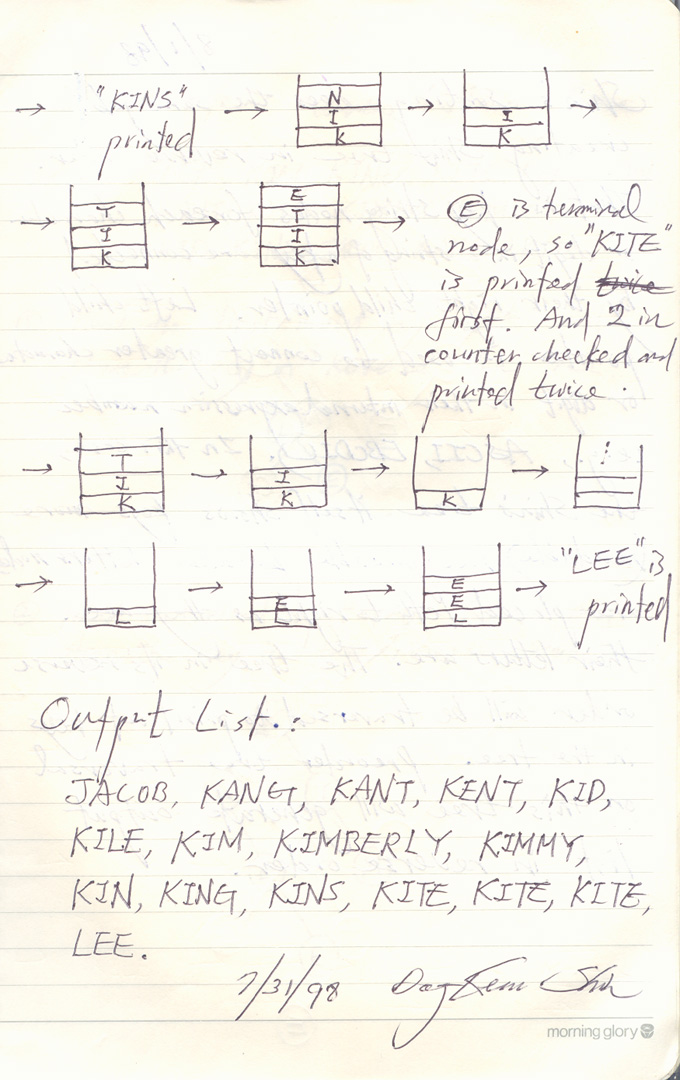 "KINS"
printed
N
I
K
I
K
T
I
K
E
T
I
K
E is terminal
node, so "KITE"
is printed twice
first. And 2 in
counter checked and
printed twice.
T
I
K
I
K
K
L
E
L
E
E
L
"LEE" is
printed
Output List.:
JACOB, KANG, KANT, KENT, KID,
KILE, KIM, KIMBERLY, KIMMY,
KIN, KING, KINS, KITE, KITE, KITE,
LEE.
7/31/98
morning glory